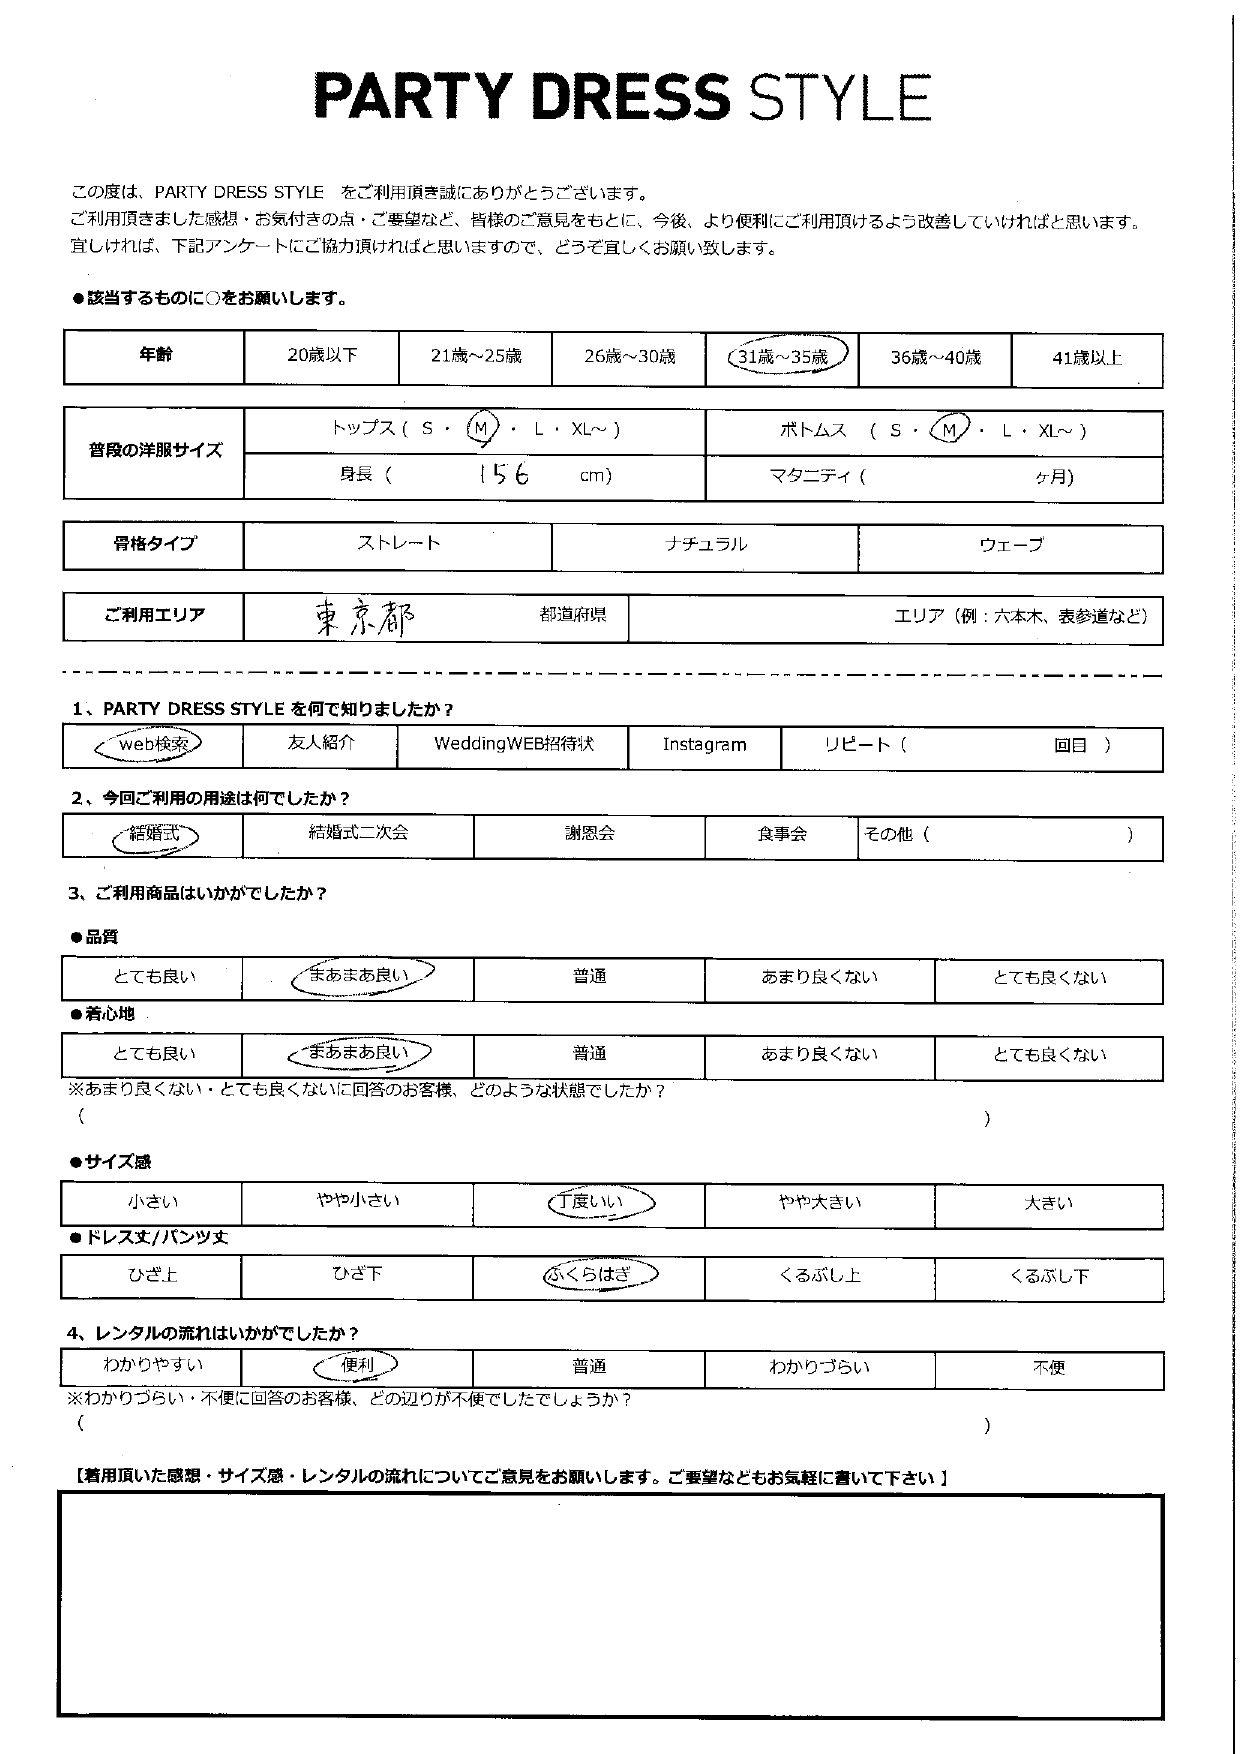 PARTY DRESS STYLE
この度は、PARTY DRESS STYLE をご利用頂き誠にありがとうございます。
ご利用頂きました感想・お気付きの点・ご要望など、皆様のご意見をもとに、今後、より便利にご利用頂けるよう改善していければと思います。
宜しければ、下記アンケートにご協力頂ければと思いますので、どうぞ宜しくお願い致します。
●該当するものに○をお願いします。
年齢 20歳以下 21歳～25歳 26歳～30歳 31歳～35歳 36歳～40歳 41歳以上
普段の洋服サイズ トップス ( S ・ M ・ L ・ XL～ ) ボトムス ( S ・ M ・ L ・ XL～ )
身長 ( 156 cm) マタニティ ( ヶ月)
骨格タイプ ストレート ナチュラル ウェーブ
ご利用エリア 東京都 都道府県 エリア（例：六本木、表参道など）
1、PARTY DRESS STYLE を何で知りましたか？
web検索 友人紹介 WeddingWEB招待状 Instagram リピート ( 回目 )
2、今回ご利用の用途は何でしたか？
結婚式 結婚式二次会 謝恩会 食事会 その他 ( )
3、ご利用商品はいかがでしたか？
●品質
とても良い まあまあ良い 普通 あまり良くない とても良くない
●着心地
とても良い まあまあ良い 普通 あまり良くない とても良くない
※あまり良くない・とても良くないに回答のお客様、どのような状態でしたか？
( )
●サイズ感
小さい やや小さい 丁度いい やや大きい 大きい
●ドレス丈/パンツ丈
ひざ上 ひざ下 ふくらはぎ くるぶし上 くるぶし下
4、レンタルの流れはいかがでしたか？
わかりやすい 便利 普通 わかりづらい 不便
※わかりづらい・不便に回答のお客様、どの辺りが不便でしたでしょうか？
( )
【着用頂いた感想・サイズ感・レンタルの流れについてご意見をお願いします。ご要望などもお気軽に書いて下さい 】